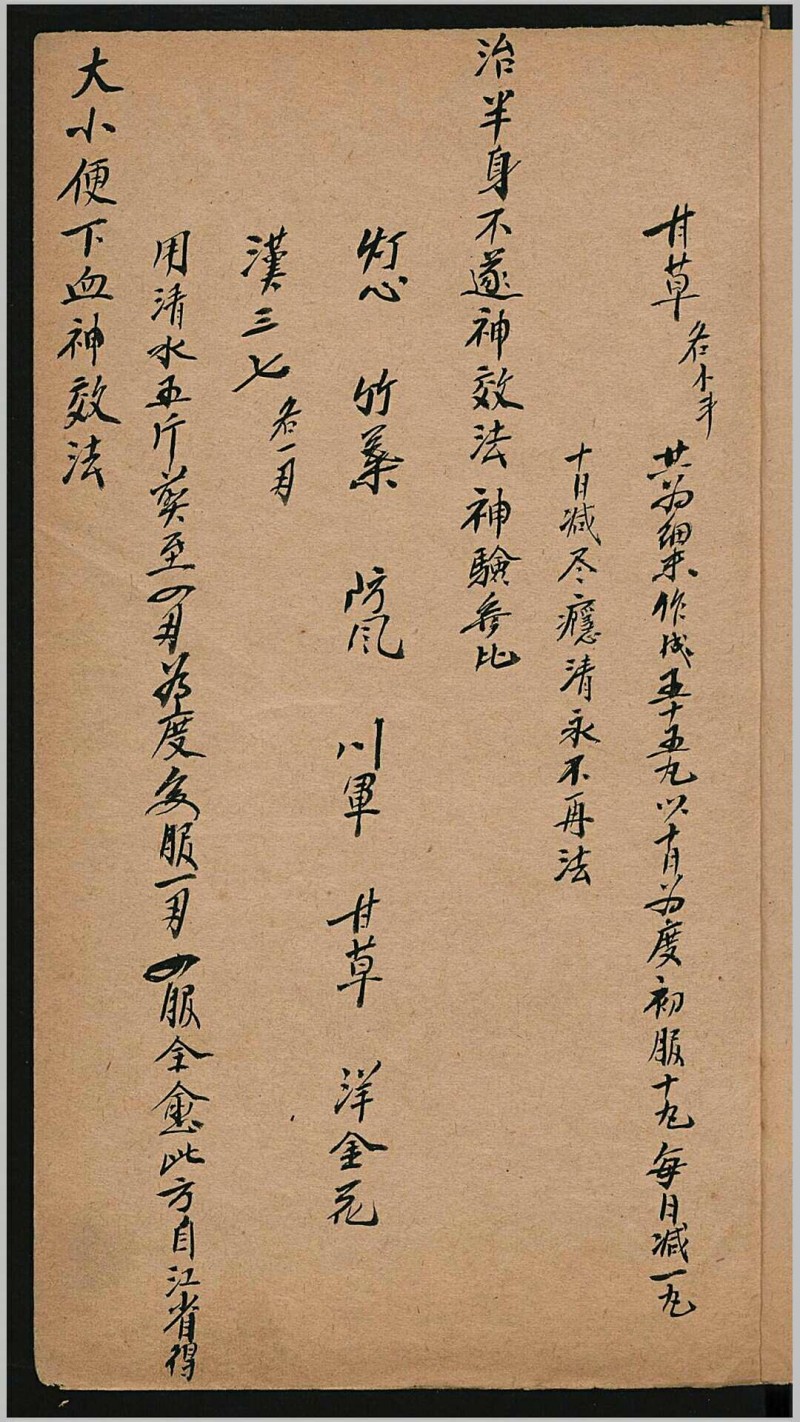 甘草 各小半 共为细末作成五十五丸以十日为度初服十丸每日减一丸
十日减尽瘾清永不再法
治半身不遂神效法神驗無比
灯心 竹葉 防风 川軍 甘草 洋金花
漢三七 各一円
用清水五斤煎至四円為度每服一円四服全愈此方自江省得
大小便下血神效法